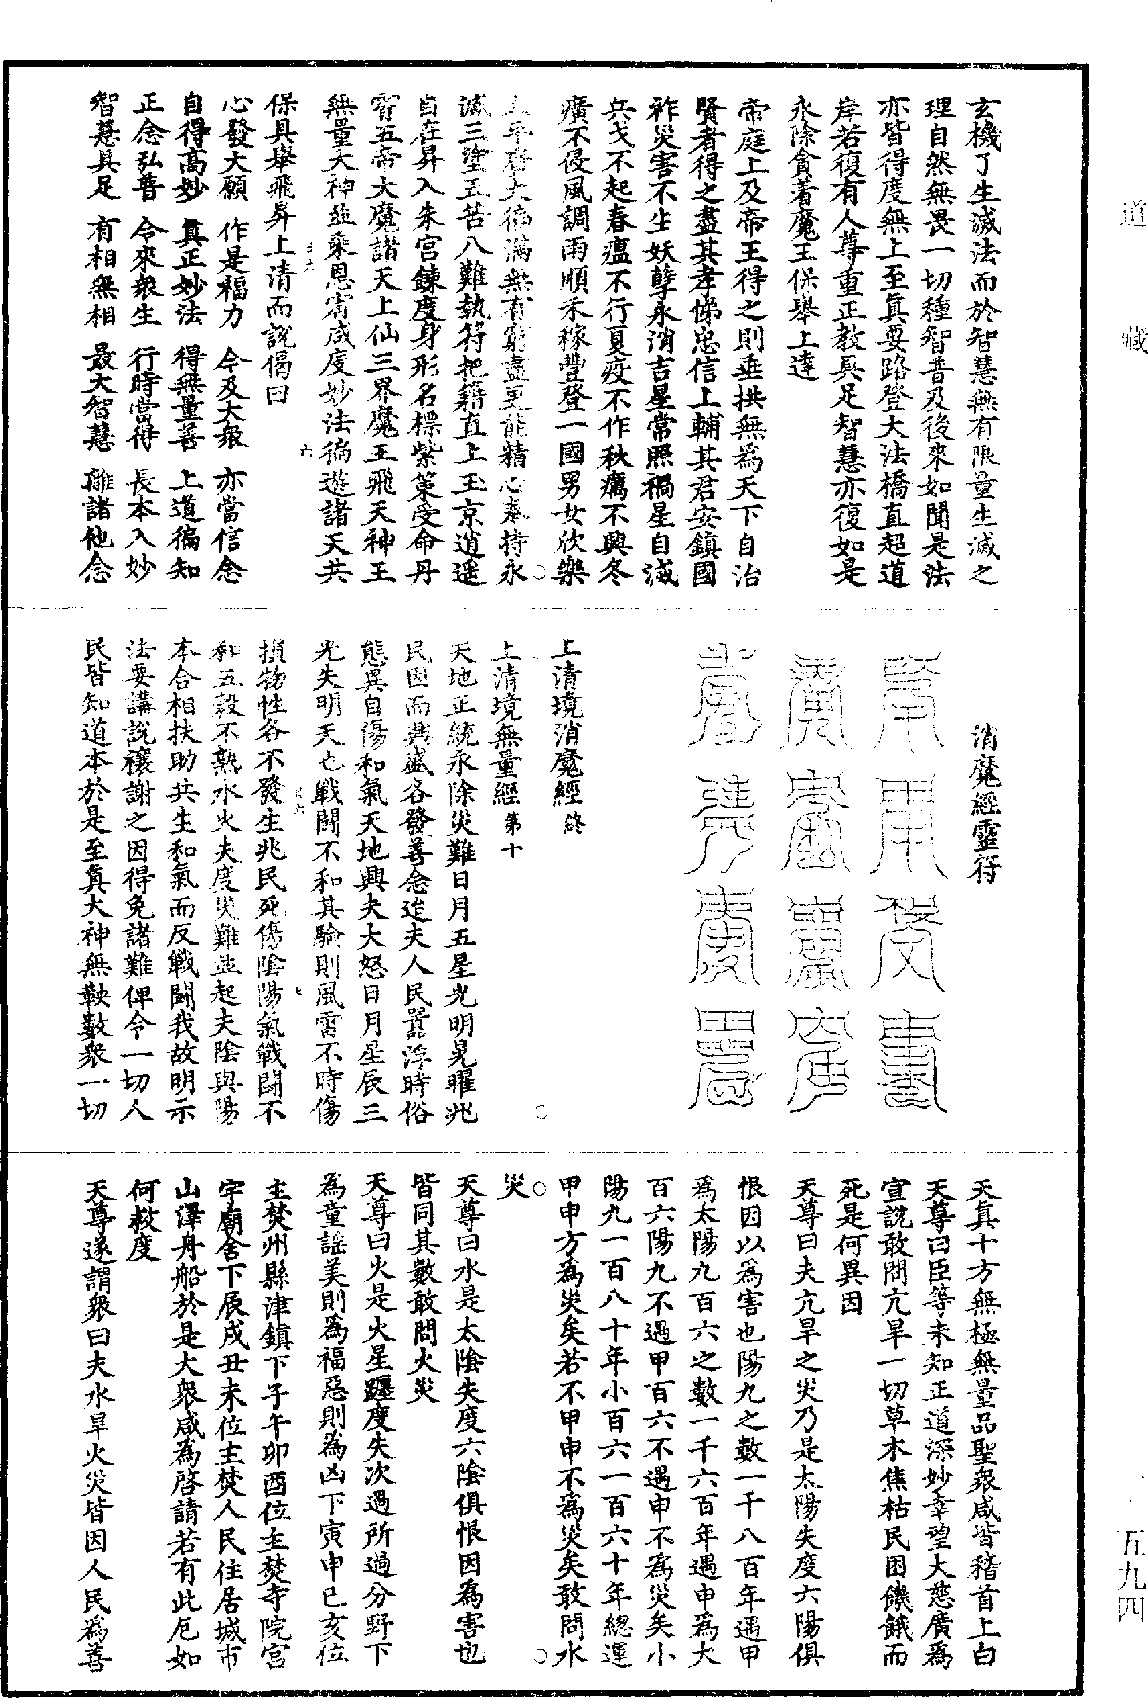 道藏
玄機了生滅法而於智慧無有限量生滅之
理自然無畏一切種智普及後來如聞是法
亦皆得度無上至真要路登大法橋直超道
岸若復有人尊重正教具足智慧亦復如是
永除貪著魔王保舉上達
帝庭上及帝王得之則垂拱無為天下自治
賢者得之盡其孝悌忠信上輔其君安鎮國
祚災害不生妖孽永消吉星常照禍星自滅
兵戈不起春瘟不行夏疫不作秋癘不興冬
癀不侵風調雨順禾稼豐登一國男女欣樂
太平啓大福滿無有窮盡更能精心奉持永
滅三塗五苦八難執符把籍直上玉京逍遥
自在昇入朱宮鍊度身形名標紫策受命丹
霄五帝大魔諸天上仙三界魔王飛天神王
無量大神並乘恩宥咸度妙法徧遊諸天共
保具舉飛昇上清而說偈曰
心發大願 作是福力 今及大衆 亦當信念
自得高妙 真正妙法 得無量善 上道徧知
正念弘普 令來衆生 行時當得 長本入妙
智慧具足 有相無相 最大智慧 離諸他念
消魔經靈符
上清境消魔經終
上清境無量經第十
天地正統永除災難日月五星光明晃曜兆
民因而興盛各發善念迨夫人民囂浮時俗
態異自傷和氣天地興夫大怒日月星辰三
光失明天亡戰鬪不和其驗則風雷不時傷
損物性各不發生兆民死傷陰陽氣戰鬪不
和五穀不熟水火失度災難並起夫陰與陽
本合相扶助共生和氣而反戰鬪我故明示
法要講說禳謝之因得免諸難俾令一切人
民皆知道本於是至真大神無鞅數衆一切
天真十方無極無量品聖衆咸皆稽首上白
天尊曰臣等未知正道深妙幸望大慈廣為
宣說敢問亢旱一切草木焦枯民困饑餓而
死是何異因
天尊曰夫亢旱之災乃是太陽失度六陽俱
恨因以為害也陽九之數一千八百年遇甲
為太陽九百六之數一千六百年遇申為大
百六陽九不遇甲百六不遇申不為災矣小
陽九一百八十年小百六一百六十年總運
甲申方為災矣若不甲申不為災矣敢問水
災
天尊曰水是太陰失度六陰俱恨因為害也
皆同其數敢問火災
天尊曰火是火星躔度失次過所過分野下
為童謡美則為福惡則為凶下寅申巳亥位
主焚州縣津鎮下子午卯酉位主焚寺院宮
宇廟舍下辰戌丑未位主焚人民住居城市
山澤舟船於是大衆咸為啓請若有此厄如
何救度
天尊遂謂衆曰夫水旱火災皆因人民為善
五九四